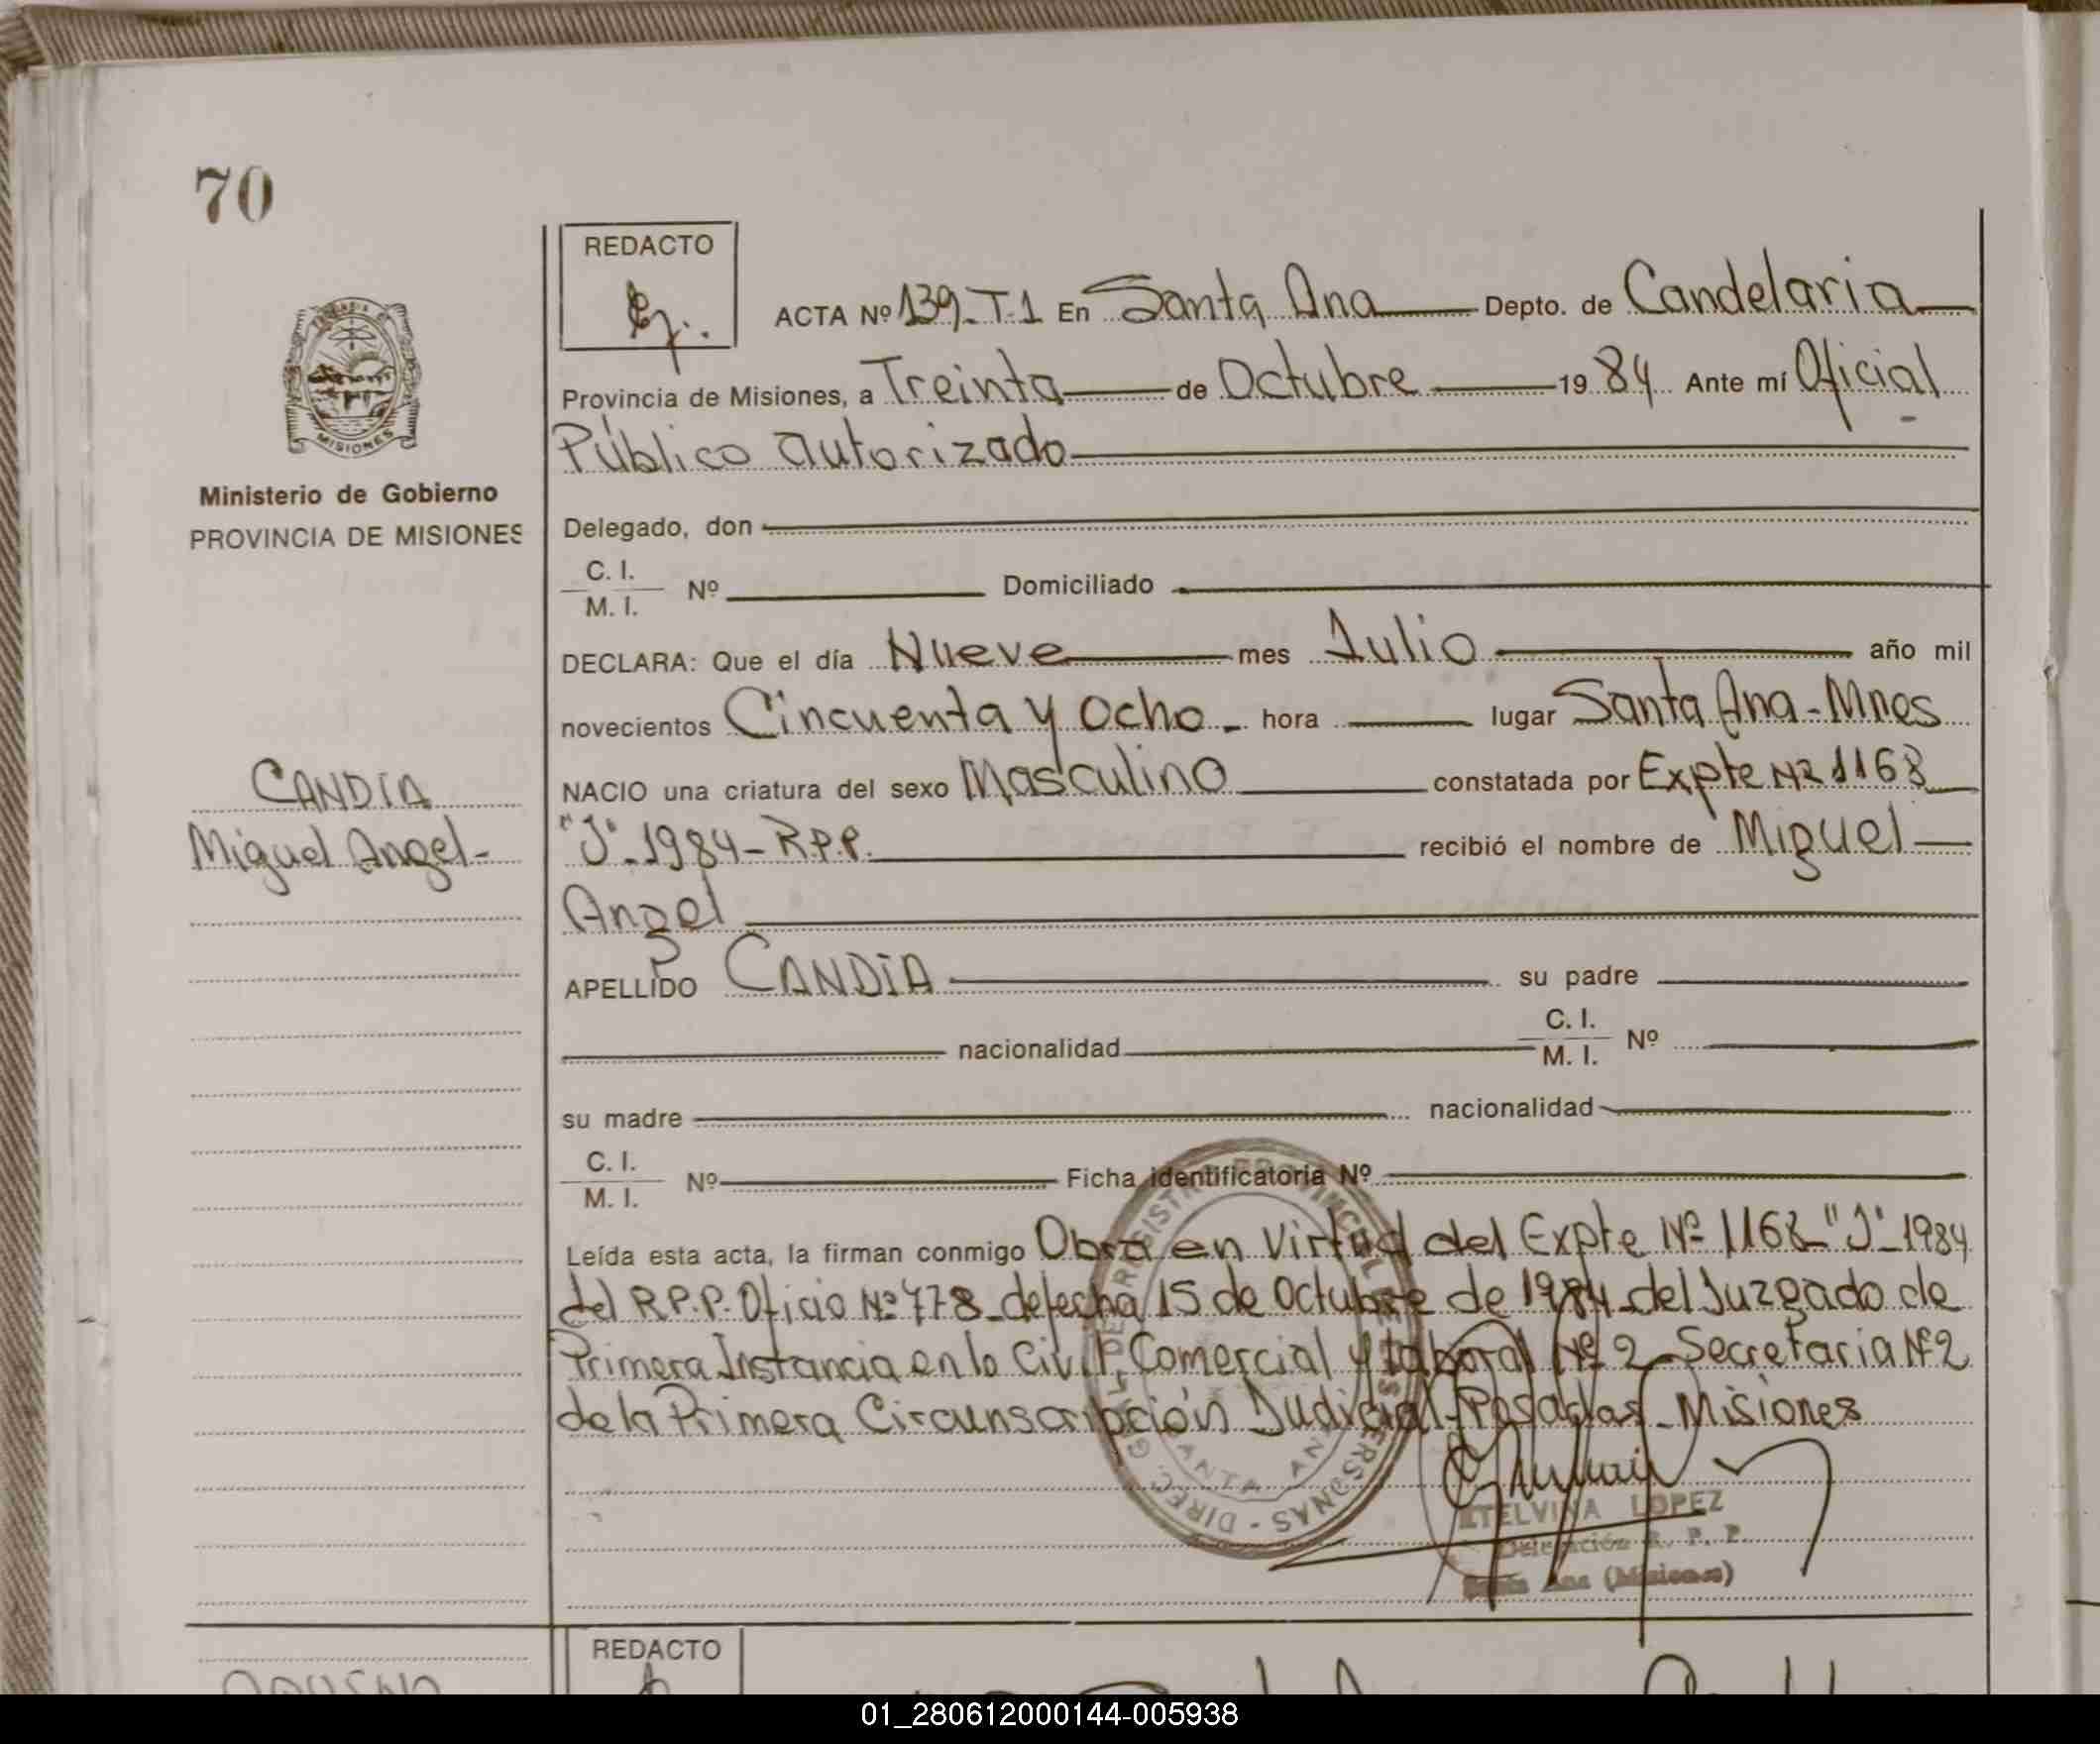 70
REDACTO
ACTA Nº 139-T-1 En Santa Ana Depto. de Candelaria
Provincia de Misiones, a Treinta de Octubre 19 84 Ante mí Oficial
Público autorizado
MISIONES
Ministerio de Gobierno
PROVINCIA DE MISIONES
Delegado, don
C. I.
M. I. Nº Domiciliado
DECLARA: Que el día Nueve mes Julio año mil
novecientos Cincuenta y Ocho - hora lugar Santa Ana - Mnes
CANDIA
Miguel Angel -
NACIO una criatura del sexo Masculino constatada por Expte Nº 1168
"J" - 1984 - R.P.P. recibió el nombre de Miguel
Angel
APELLIDO CANDIA su padre
nacionalidad C. I.
M. I. Nº
su madre nacionalidad
C. I.
M. I. Nº Ficha identificatoria Nº
Leída esta acta, la firman conmigo Obra en Virtud del Expte Nº 1168 "J" - 1984
del R.P.P. Oficio Nº 778 - de fecha 15 de Octubre de 1984 - del Juzgado de
Primera Instancia en lo Civil, Comercial y Laboral Nº 2 - Secretaria Nº 2
de la Primera Circunscripción Judicial - Posadas - Misiones
SANTA ANA
ETELVINA LOPEZ
Delegación R. P. P.
Santa Ana (Misiones)
REDACTO
01_280612000144-005938